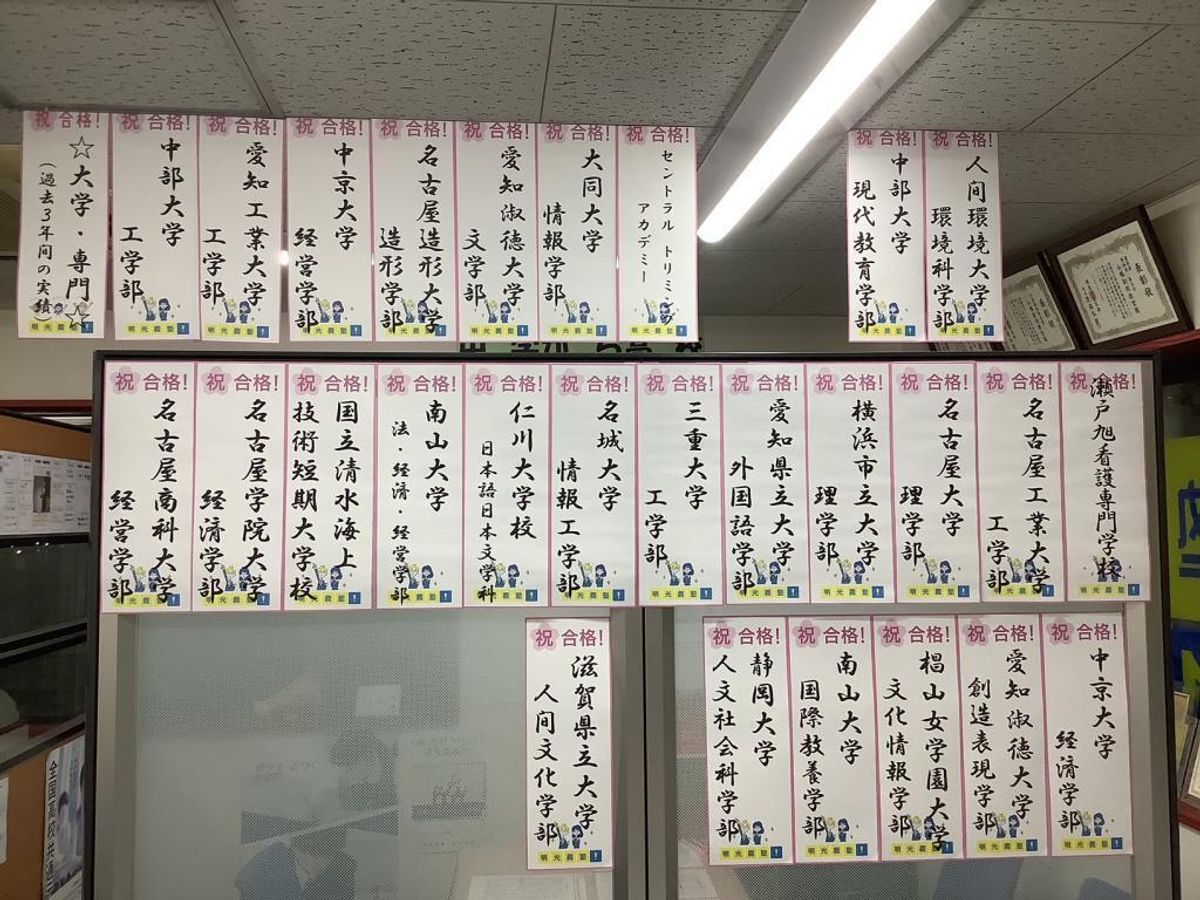 祝 合格!
☆大学・専門
(過去3年間の実績)
明光義塾!
祝 合格!
中部大学
工学部
明光義塾!
祝 合格!
愛知工業大学
工学部
明光義塾!
祝 合格!
中京大学
経営学部
明光義塾!
祝 合格!
名古屋造形大学
造形学部
明光義塾!
祝 合格!
愛知淑徳大学
文学部
明光義塾!
祝 合格!
大同大学
情報学部
明光義塾!
祝 合格!
セントラル トリミング
アカデミー
明光義塾!
祝 合格!
中部大学
現代教育学部
明光義塾!
祝 合格!
人间環境大学
環境科学部
明光義塾!
表彰状
表彰状
祝 合格!
名古屋商科大学
経営学部
明光義塾!
祝 合格!
名古屋学院大学
経済学部
明光義塾!
祝 合格!
国立清水海上
技術短期大学校
明光義塾!
祝 合格!
南山大学
法・経済・経営学部
明光義塾!
祝 合格!
仁川大学校
日本語日本文学科
明光義塾!
祝 合格!
名城大学
情報工学部
明光義塾!
祝 合格!
三重大学
工学部
明光義塾!
祝 合格!
愛知県立大学
外国語学部
明光義塾!
祝 合格!
横浜市立大学
理学部
明光義塾!
祝 合格!
名古屋大学
理学部
明光義塾!
祝 合格!
名古屋工業大学
工学部
明光義塾!
祝 合格!
瀬戸旭看護専門学校
明光義塾!
祝 合格!
滋賀県立大学
人间文化学部
明光義塾!
祝 合格!
静岡大学
人文社会科学部
明光義塾!
祝 合格!
南山大学
国際教養学部
明光義塾!
祝 合格!
椙山女学園大学
文化情報学部
明光義塾!
祝 合格!
愛知淑徳大学
創造表現学部
明光義塾!
祝 合格!
中京大学
経済学部
明光義塾!
全国高校共通